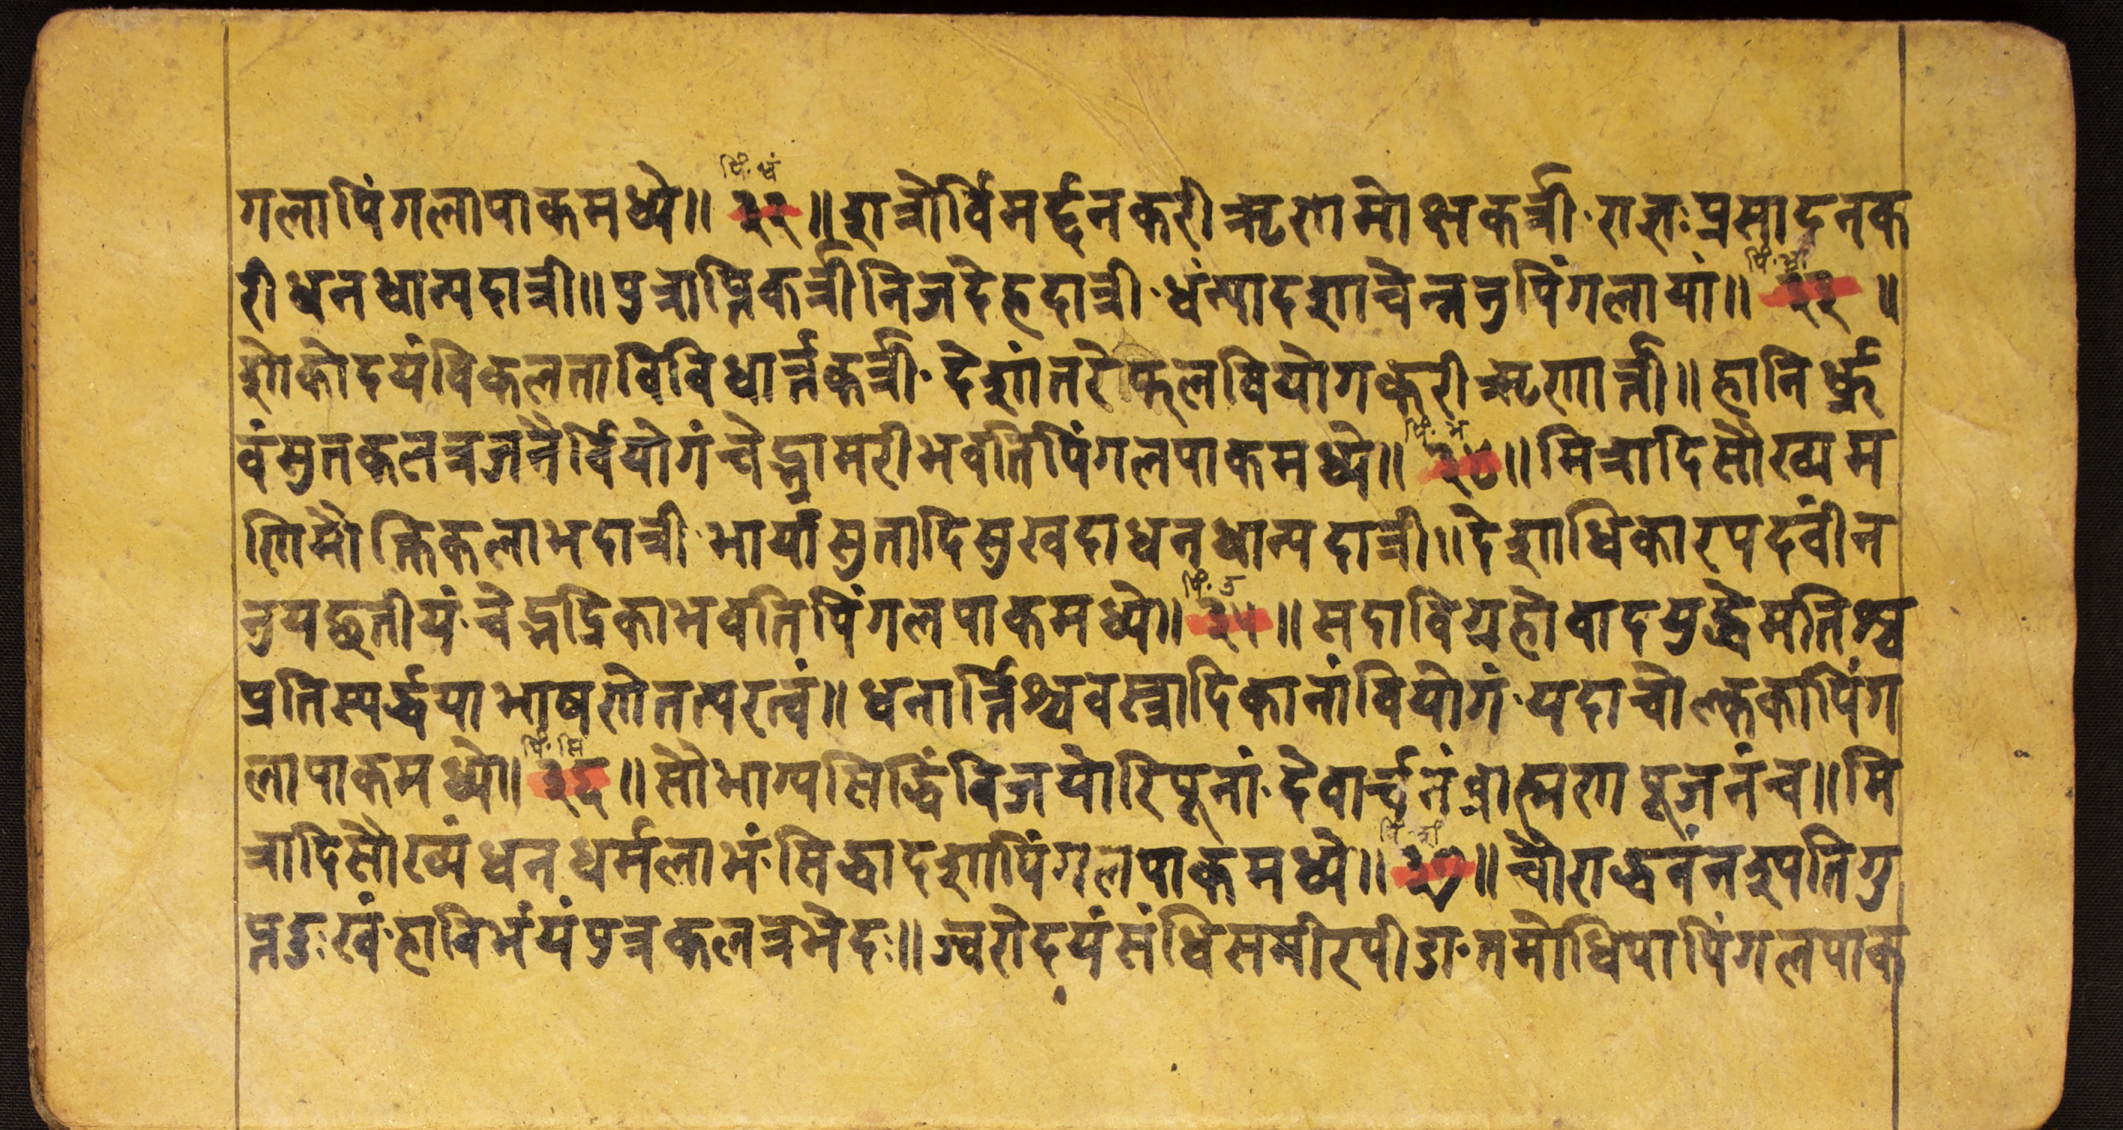 पिं. धं
गलापिंगलापाकमध्ये॥ २२ ॥ शत्रोर्विमर्द्दनकरी ऋणमोक्षकर्त्री · राज्ञः प्रसादनक
पिं. भ्रा
री धनधान्यदात्री॥ पुत्राप्तिकर्त्री निजदेहदात्री · धंन्यादशाचेन्ननु पिंगलायां॥ २३ ॥
शोकोदयं विकलता विविधार्त्तकर्त्री · देशांतरे कुलवियोगकरी ऋणार्त्ती॥ हानिर्ध्रु
पिं. भ
वं सुतकलत्रजनैर्वियोगं चेद्भ्रामरी भवति पिंगलपाकमध्ये॥ २४ ॥ मित्रादिसौख्यम
णिमौक्तिकलाभदात्री · भार्यासुतादिसुखदा धनधान्यदात्री॥ देशाधिकारपदवीं न
पिं. उ
नु यद्द्वितीयं · चेद्भद्रिका भवति पिंगलपाकमध्ये॥ २५ ॥ सदाविग्रहो वादयुद्धैमतिश्च
प्रतिस्पर्द्धया भाषणे तत्परत्वं॥ धनार्त्तिश्चवस्त्रादिकानां वियोगं · यदा चोल्कका पिंग
पिं. सि
लापाकमध्ये॥ २६ ॥ सौभाग्यसिद्धिं विजयो रिपूनां · देवार्च्चनं ब्राह्मणपूजनं च॥ मि
त्रादिसौख्यं धनधर्मलाभं · सिद्धादशा पिंगलपाकमध्ये॥ २७ ॥ चौराद्धनं नृपतिगु
प्तदुःखं · हानिर्भयं पुत्रकलत्रभेदः॥ ज्वरोदयं संधिसमीरपीडा · तमोधिपा पिंगलपाक